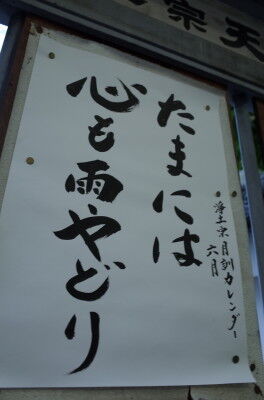 宗天
たまには
心も雨やどり
浄土宗月訓カレンダー
六月